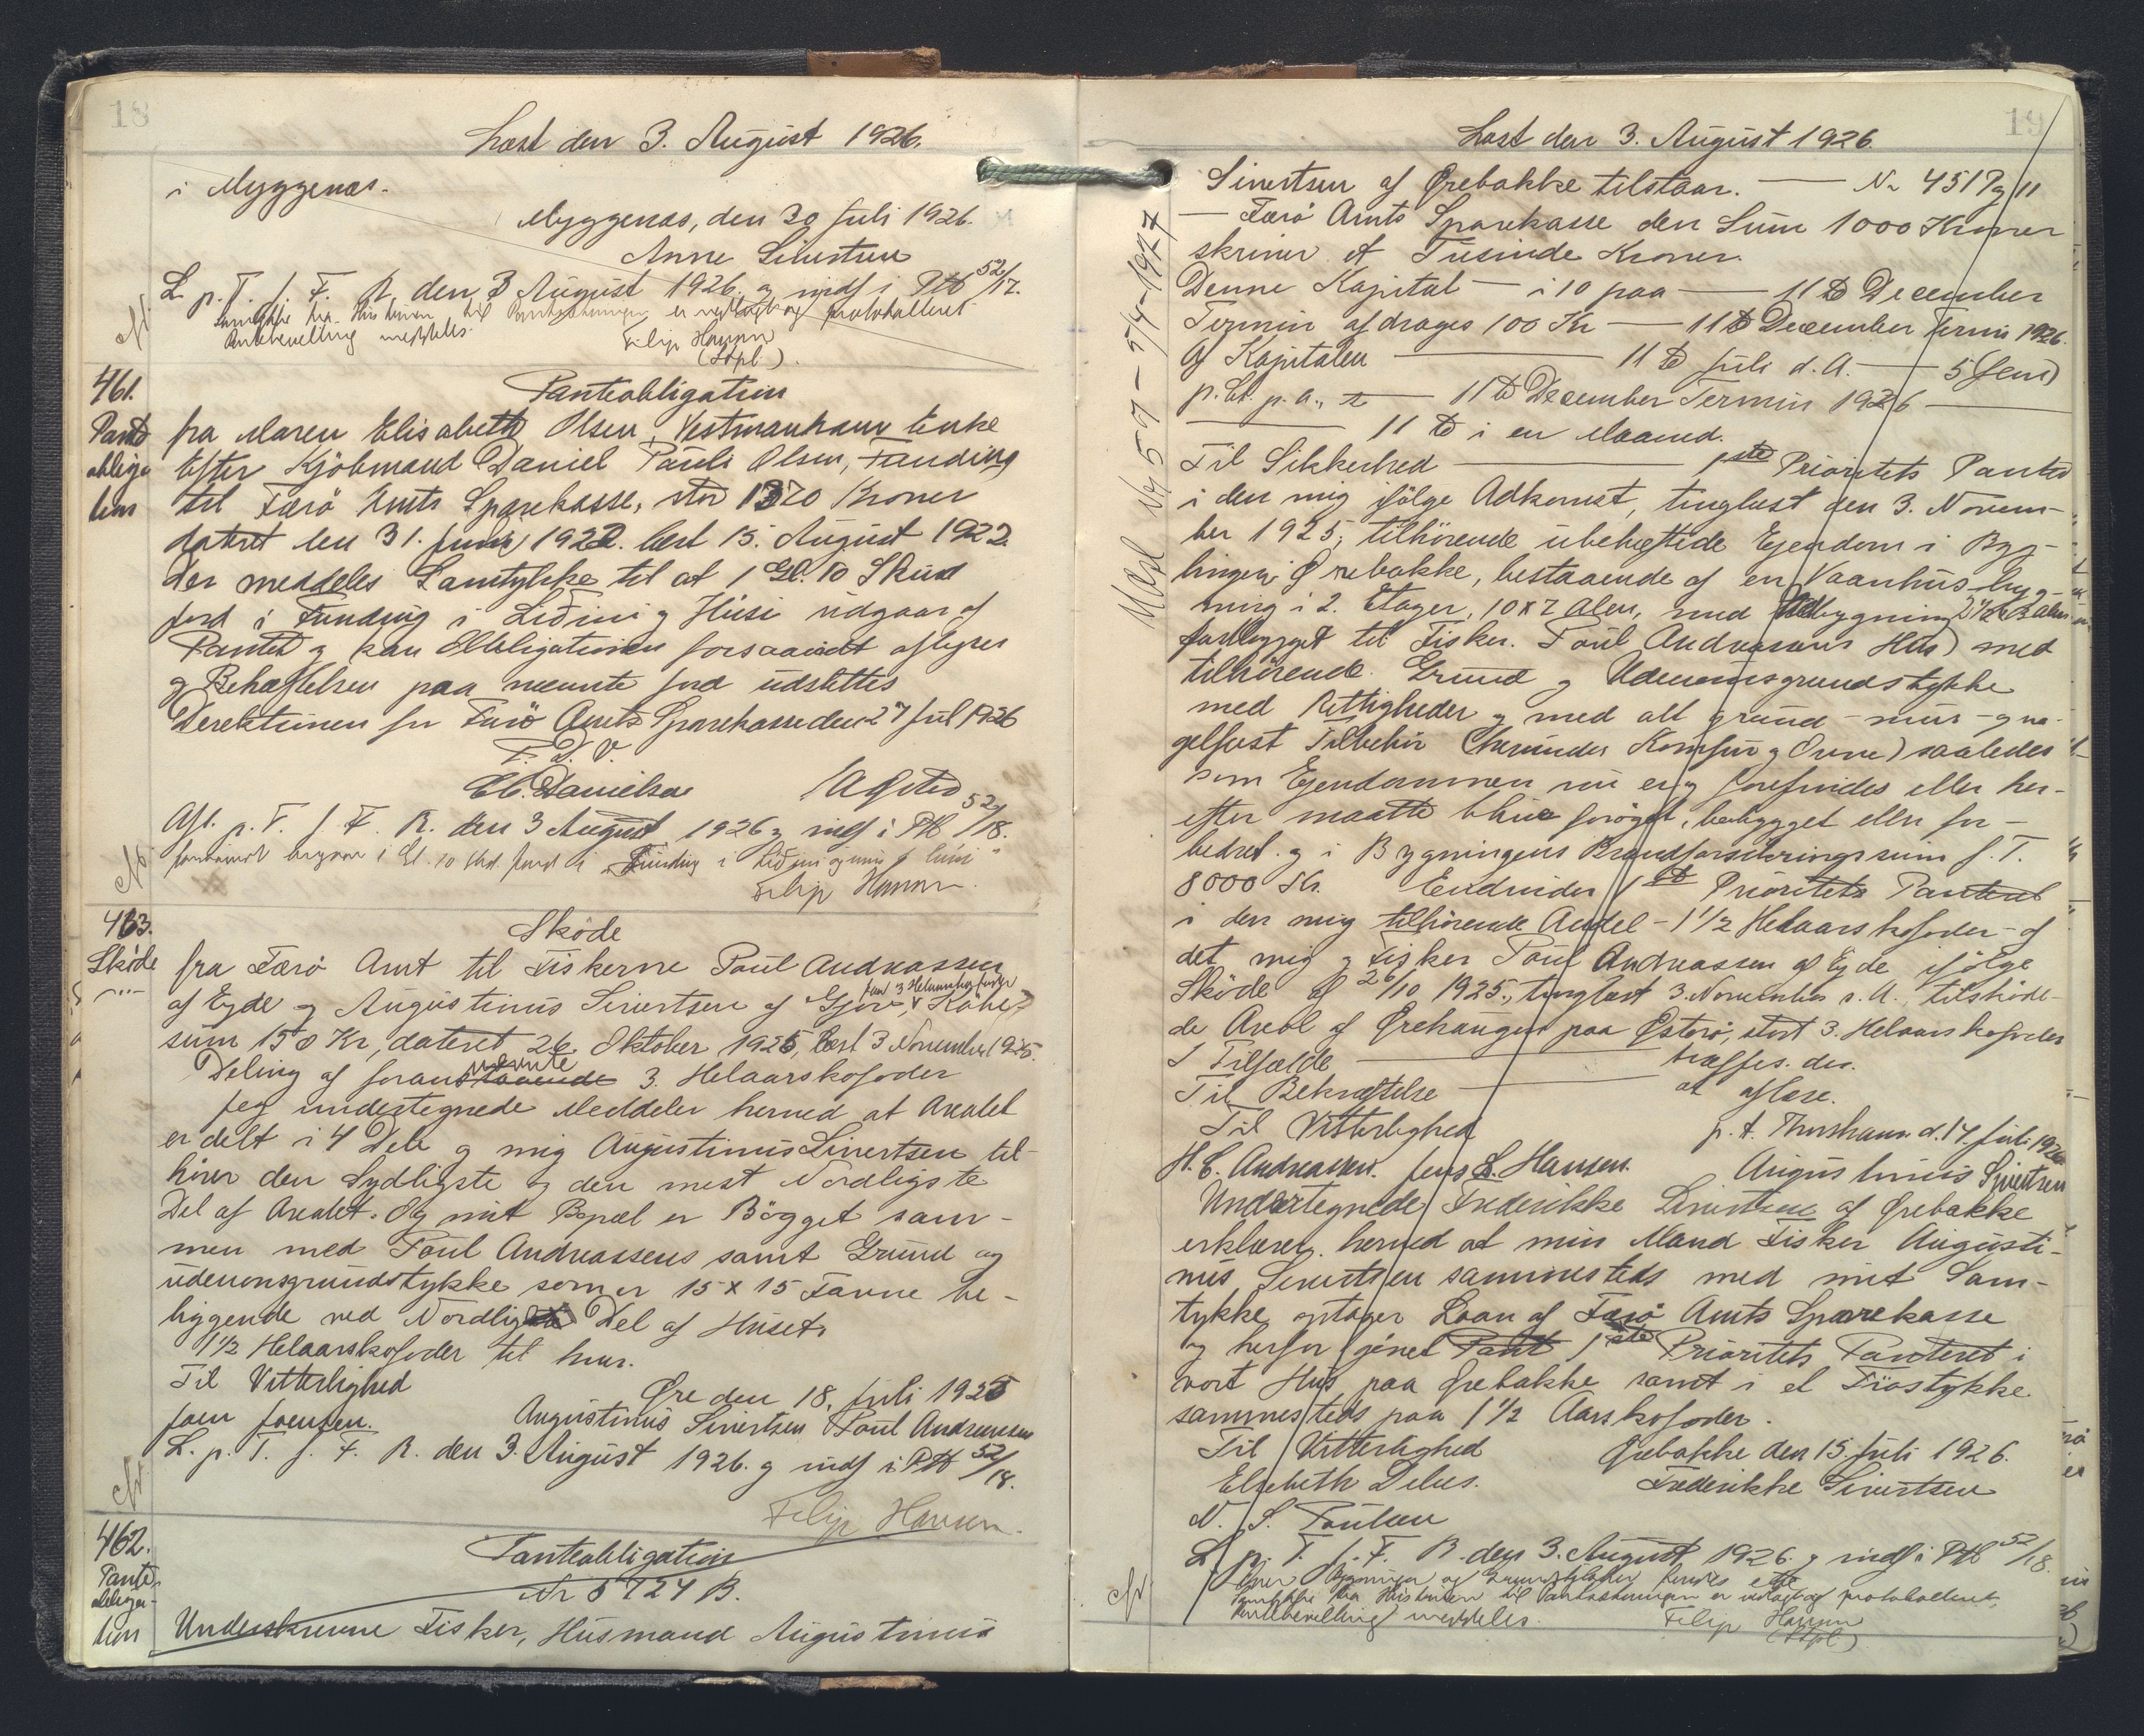 18
Læst den 3. August 1926.
i Myggenæs.
Myggenæs, den 30 Juli 1926.
Anne Sivertsen
L. p. T. f. F. R. den 3 August 1926. og indf i PtB 52/17.
Samtykke fra Hustruen til Pantsætningen er vedlagt og protokolleret
Pantebevilling meddeles.
Filip Hansen
(Stpl).
461.
Pante
obliga
tion
Panteobligation
fra Maren Elisabeth Olsen, Vestmanhavn Enke
efter Kjöbmand Daniel Pauli Olsen, Funding
til Færö Amts Sparekasse, stor 1370 Kroner
dateret den 31. Juli 1922. læst 15. August 1922.
Der meddeles Samtykke til at 1 Gl. 10 Skind
Jord i Funding i Liðini og Húsi udgaar af
Pantet og kan Obligationen forsaavidt aflyses
og Behæftelsen paa nævnte Jord udslettes
Direktionen for Færö Amts Sparekasse den 27 Juli 1926
P. D. V.
C. Danielsen
Afl. p. T. f. F. R. den 3 August 1926 og indf i PtB 52/18.
forsaavidt angaar 1 Gl. 10 Skd. Jord i Funding i
Filip Hansen.
463.
Skøde
Sköde
fra Færö Amt til Fiskerne Poul Andreassen
af Eyde og Augustinus Sivertsen af Gjov, Köbe-
sum 150 Kr, dateret 26. Oktober 1925, læst 3 November 1925.
nævnte
Deling af foranstaaende 3. Helaarskofoder
Jeg undertegnede Meddeler herved at Arealet
er delt i 4 Dele og mig Augustinus Sivertsen til-
hører den Sydligste og den mest Nordligste
Del af Arealet. Og mit Bopæl er Bögget sam-
men med Poul Andreassens samt Grund og
udenomsgrundstykke som er 15 x 15 Favne be-
liggende ved Nordlig Del af Huset.
1 1/2 Helaarskofoder til hver.
Til Vitterlighed
Øre den 18. Juli 1926
Joen Joensen.
Augustinus Sivertsen Poul Andreassen
L. p. T. f. F. R. den 3. August 1926. og indf i PtB 52/18.
Filip Hansen.
462.
Pante-
obliga-
tion
Panteobligation
Nr 5724 B.
Underskrevne Fisker, Husmand Augustinus
19
Læst den 3. August 1926.
Sivertsen af Ørebakke tilstaar. — Nr 4517 og 11
— Færö Amts Sparekasse den Sum 1000 Kroner
skriver et Tusinde Kroner.
Denne Kapital — i 10 paa — 11 te December
Termin afdrages 100 Kr — 11 te December Termin 1926.
Af Kapitalen — 11 te Juli d. A. — 5 (fem)
p. Ct. p. a., — 11 te December Termin 1926 —
— 11 te i en Maaned.
Til Sikkerhed — 1ste Prioritets Panteret
i den mig ifölge Adkomst, tinglæst den 3. Novem-
ber 1925, tilhörende ubehæftede Ejendom i Byg-
lingen Ørebakke, bestaaende af en Vaanhusbyg-
ning i 2. Etager, 10 x 7 Alen, med Udbygning
tilbygget til Fisker. Poul Andreasens Hus) med
tilhörende Grund og Udenomsgrundstykke
med Rettigheder og med alt grund- mur- og na-
gelfast Tilbehör (herunder Komfur og Ovne) saaledes
som Ejendommen nu er og forefindes eller her-
efter maatte blive foröget, bebygget eller for-
bedret og i Bygningens Brandforsikringssum f. T.
8000 Kr. Endvidere 1ste Prioritets Panteret
i den mig tilhörende Andel - 1 1/2 Helaarskofoder - af
det mig og Fisker Poul Andreassen af Eyde ifölge
Sköde af 26/10 1925, tinglæst 3. November s. A., tilsköde-
de Areal af Ørehaugen paa Österö, stort 3. Helaarskofoder
I Tilfælde — træffes. der.
Til Bekræftelse — at aflæse.
Til Vitterlighed
p. t. Thorshavn d. 14. Juli 1926
H. C. Andreassen. Jens S. Hansen.
Augustinus Sivertsen
Undertegnede Frederikke Sivertsen af Ørebakke
erklærer herved at min Mand Fisker Augusti-
nus Sivertsen sammesteds med mit Sam-
tykke optager Laan af Færö Amts Sparekasse
og herfor givet Pant 1ste Prioritets Panteret i
vort Hus paa Ørebakke samt i et Fæstykke
sammesteds paa 1 1/2 Aarskofoder.
Til Vitterlighed
Ørebakke den 15. Juli 1926.
Elsebeth Delus.
Frederikke Sivertsen
N. S. Poulsen
L. p. T. f. F. R. den 3. August 1926. og indf i PtB 52/18.
Samtykke fra Hustruen til Pantsætningen er vedlagt og protokolleret.
Pantebevilling meddeles.
Filip Hansen
(Stpl)